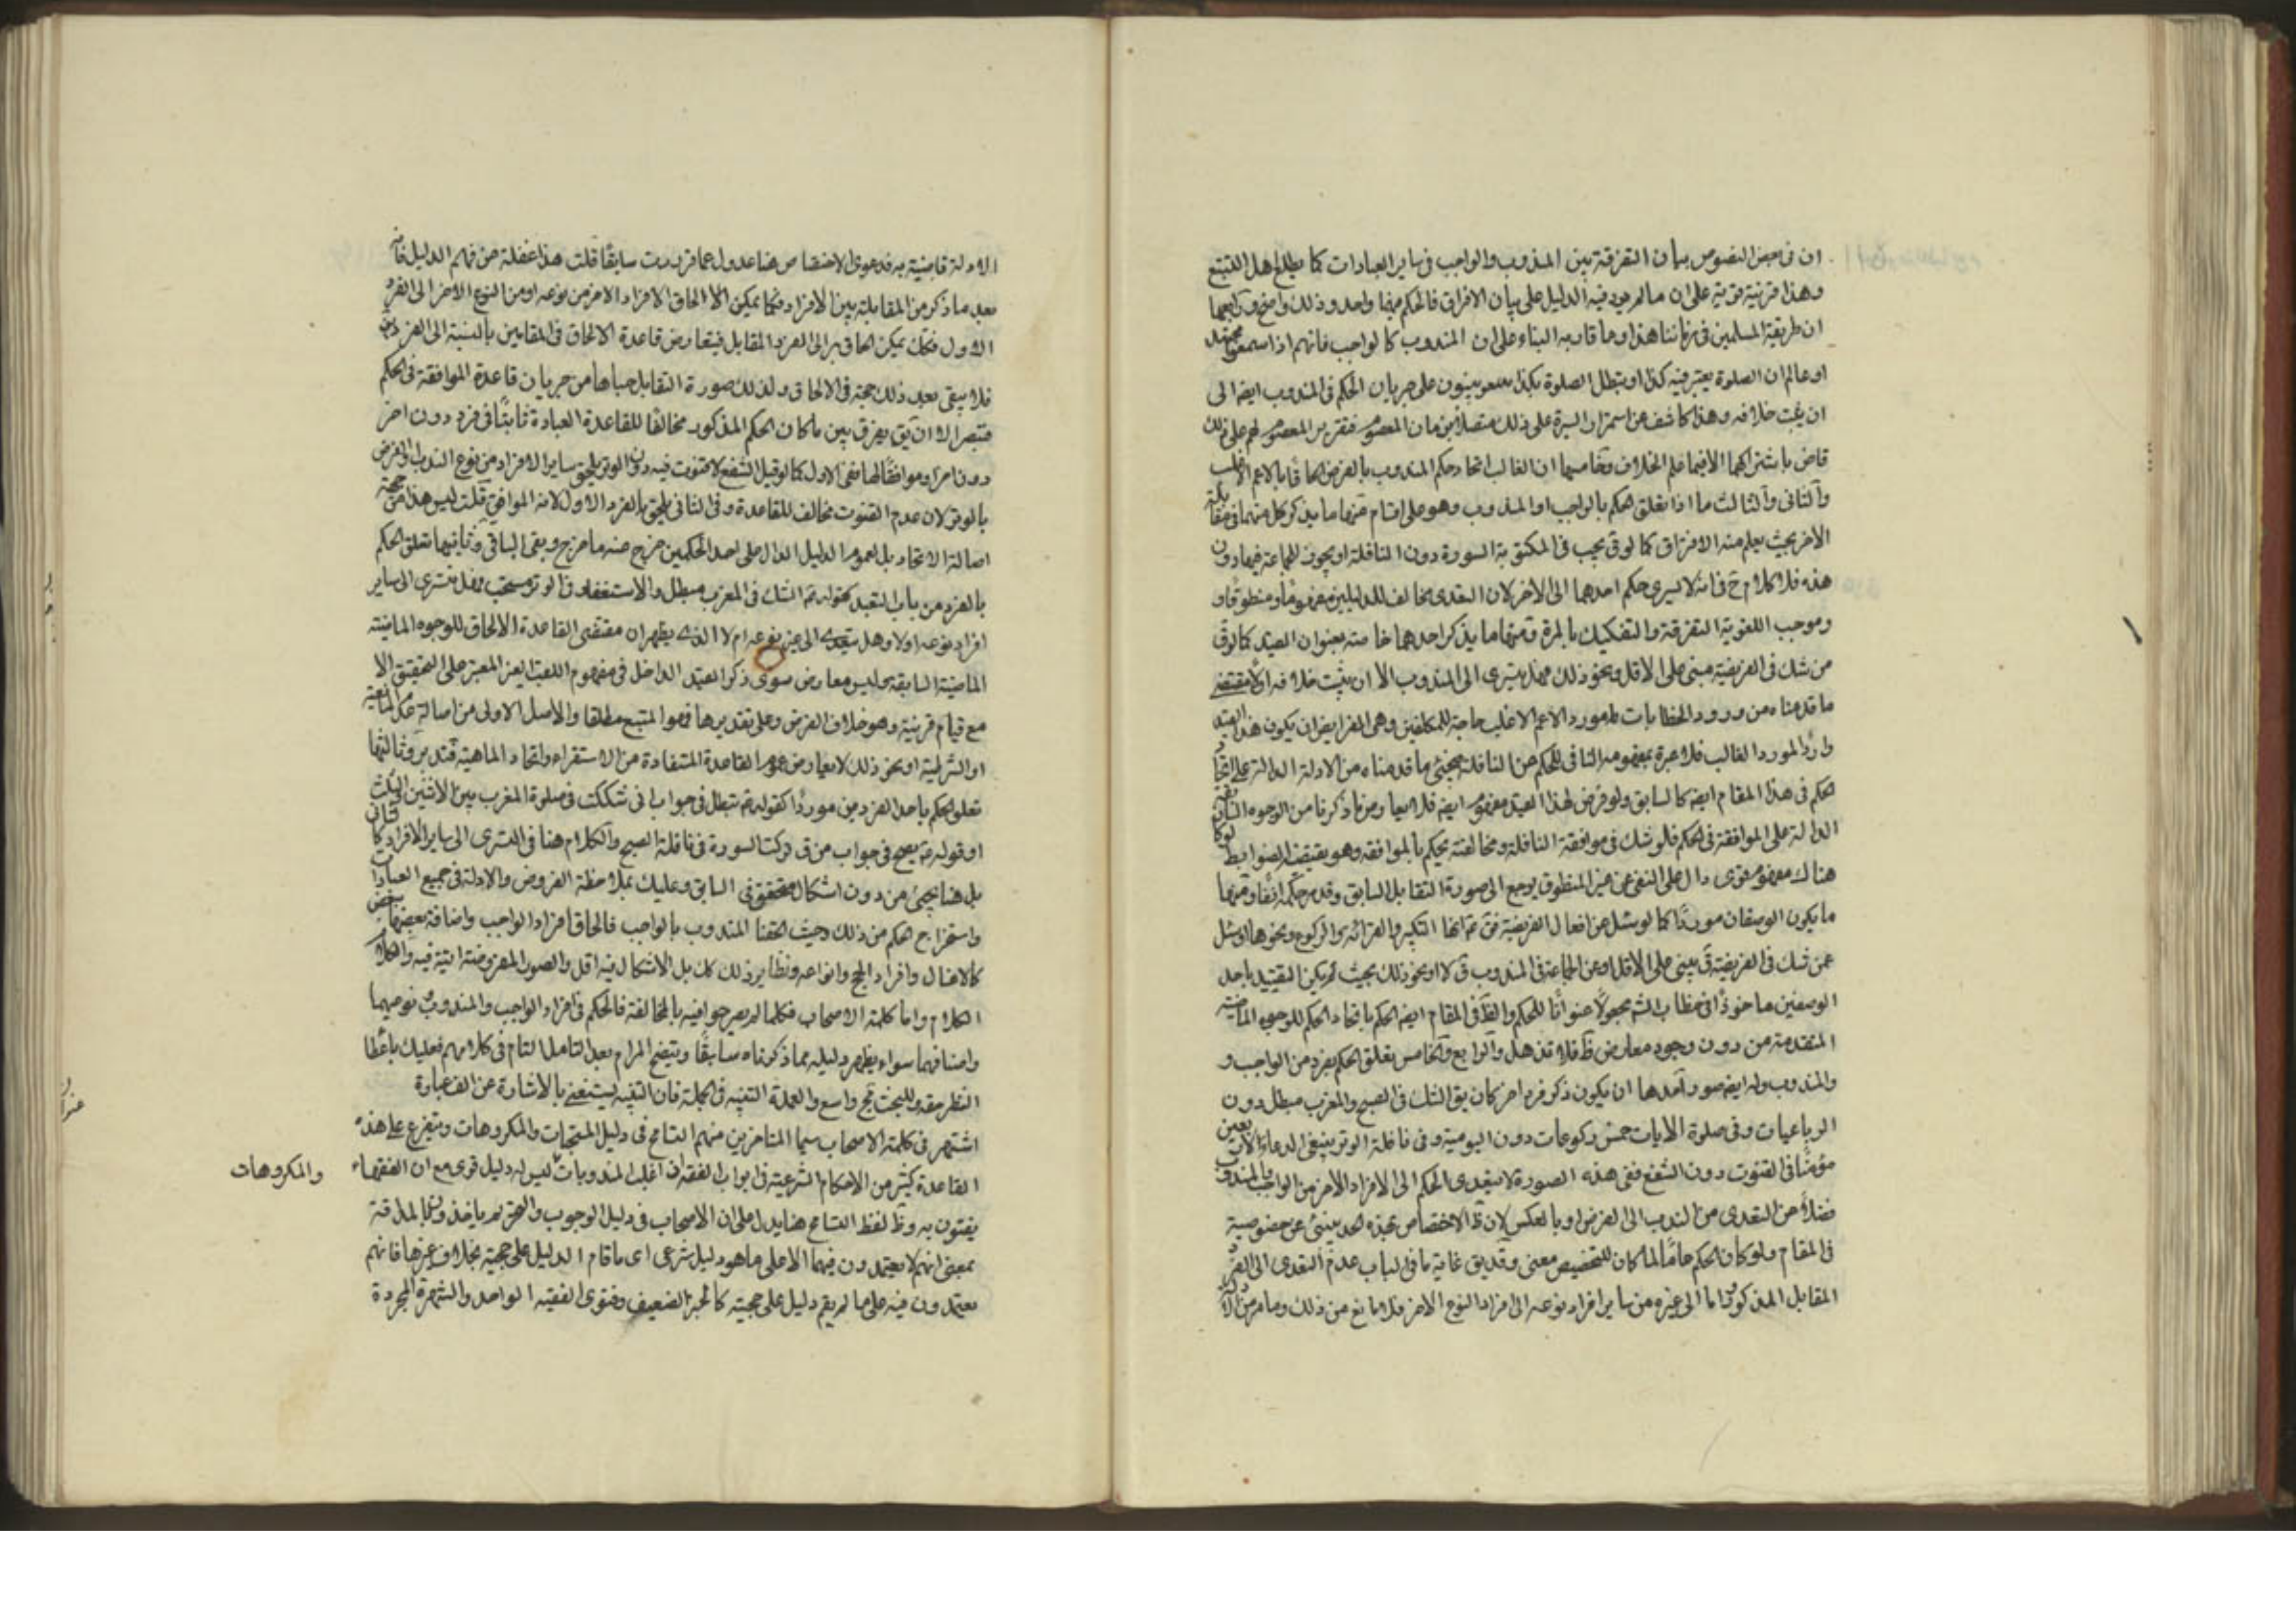 ان في بعض النصوص بيان التفرقة بين المندوب والواجب في ساير العبادات كما يطلع اهل التتبع
وهذا قرينة قوية على ان ما لم يرد فيه الدليل على بيان الافراق فالحكم فيها واحد وذلك واضح ورابعها
ان طريقة المسلمين في زماننا هذا وما قاربه البناء على ان المندوب كالواجب فانهم اذا سمعوا مجتهد
او عالم ان الصلوة يعتبر فيه كذا او تبطل الصلوة بكذا يبنون على جريان الحكم في المندوب ايضا الى
ان يثبت خلافه وهذا كاشف عن استمرار السيرة على ذلك متصلا بزمان المعصوم فتقرير المعصوم لهم على ذلك
قاض باشتراكهما الا فيما علم الخلاف وخامسها ان الغالب اتحاد حكم المندوب بالفرض الحاقا بالاعم الاغلب
والثاني والثالث ما اذا تعلق الحكم بالواجب او المندوب وهو على اقسام منها ما يذكر كل منهما في مقابلة
الاخر بحيث يعلم منه الافتراق كما لو ق يجب في المكتوبة السورة دون النافلة او يجوز الجماعة فيها دون
هذه فلا كلام ح في انه لا يسري حكم احدهما الى الاخر لان التعدي مخالف للدليلين مفهوما ومنطوقا و
وموجب اللغوية التفرقة والتفكيك بالمرة ومنها ما يذكر احدهما خاصة بعنوان القيد كما لو ق
من شك في الفريضة مبني على الاقل ونحو ذلك فهل يسري الى المندوب الا ان يثبت خلافه او لا مقتضى
ما قدمناه من ورود الخطابات لمورد الاعم الاغلب حاجة للمكلفين وهي الفرايض ان يكون هذا القيد
واردا لمورد الغالب فلا عبرة بمفهومه النافي للحكم عن النافلة فيجيئ ما قدمناه من الادلة الدالة على اتحاد
الحكم في هذا المقام ايضا كالسابق ولو فرض لهذا القيد مفهوم ايضا فلا يعارض ما ذكرنا من الوجوه السابقة
الدالة على الموافقة في الحكم فلو شك في موافقة النافلة ومخالفته يحكم بالموافقة وهو يقتضيه الضوابط لو كان
هناك مفهوم قوي دال على النفي عن غير المنطوق يرجع الى صورة التقابل السابق وقد مر حكمه انفا ومنها
ما يكون الوصفان موردا كما لو سئل عن افعال الفريضة فق ع انها التكبير والقرائة والركوع ونحوها او سئل
عن شك في الفريضة ق يبني على الاقل او عن الجماعة في المندوب ق لا او نحو ذلك بحيث لم يكن التقييد باحد
الوصفين ماخوذا في خطاب الش مجعولا عنوانا للحكم والظ في المقام ايضا الحكم باتحاد الحكم للوجوه الماضية
المتقدمة من دون وجود معارض ظ فلا تذهل والرابع والخامس تعلق الحكم بفرد من الواجب و
والمندوب وله ايضا صور احدها ان يكون ذكر فرد اخر كان يق الشك في الصبح والمغرب مبطل دون
الرباعيات وفي صلوة الايات خمس ركوعات دون اليومية وفي نافلة الوتر ينبغي الدعاء لاربعين
مؤمنا في القنوت دون الشفع ففي هذه الصورة لا يتعدى الحكم الى الافراد الاخر من الواجب والمندوب
فضلا عن التعدي من الندب الى الفرض او بالعكس لان ظ الاختصاص بهذه الحد ينبئ عن خصوصية
في المقام ولو كان الحكم عاما لما كان للتخصيص معنى وقد يق غاية ما في الباب عدم التعدي الى الفرد
المقابل المذكور واما الى غيره من ساير افراد نوعه الى افراد النوع الاخر فلا مانع من ذلك وما مر من الادلة
الادلة قاضية به فدعوى الاختصاص هنا عدول عما قررت سابقا قلت هذا غفلة من فهم الدليل فانه
بعد ما ذكر من المقابلة بين الافراد فكما يمكن الحاق الافراد الاخر من نوعه او من النوع الاخر الى الفرد
الاول فكك يمكن الحاقه الى الفرد المقابل فيتعارض قاعدة الالحاق في المقامين بالنسبة الى الفردين
فلا يبقى بعد ذلك حجة في الالحاق ولذلك صورة التقابل حباها من جريان قاعدة الموافقة في الحكم
فتبصر الا ان يق يفرق بين ما كان الحكم المذكور مخالفا للقاعدة العبادة ثابتا في فرد دون اخر
دون امر او موافقا لها ففي الاول كما لو قيل الشفع لا قنوت فيه دون الوتر يلحق ساير الافراد من نوع الندب او الفرض
بالوتر لان عدم القنوت مخالف للقاعدة وفي الثاني يلحق بالفرد الاول لانه الموافق قلت ليس هذا من جهة
اصالة الاتحاد بل لعموم الدليل الدال على احد الحكمين خرج منه ما خرج وبقى الباقي وثانيها تعلق الحكم
بالفرد من باب التقييد كقوله ع الشك في المغرب مبطل والاستغفار في الوتر مستحب فهل يسري الى ساير
افراد نوعه او لا وهل يتعدى الى غير نوعه ام لا الذي يظهر ان مقتضى القاعدة الالحاق للوجوه الماضية
الماضية السابقة وليس معارض سوى ذكر القيد الداخل في مفهوم اللقب الغير المعتبر على التحقيق الا
مع قيام قرينة وهو خلاف الفرض وعلى تقديرها فهو المتبع مطلقا والاصل الاولى من اصالة عدم المانعية
او الشرطية او نحو ذلك لا يعارض عموم القاعدة المستفادة من الاستقراء واتحاد الماهية فتدبر وثالثها
تعلق الحكم باحد الفردين موردا كقوله ع تبطل في جواب اني شككت في صلوة المغرب بين الاثنين والثلث
او قوله ع يصح في جواب من ق تركت السورة في نافلة الصبح والكلام هنا في التسري الى ساير الافراد كما
بل هنا يجيئ من دون اشكال متحقق في السابق وعليك بملاحظة الفروض والادلة في جميع العبادات
واستخراج الحكم من ذلك وحيث الحقنا المندوب بالواجب فالحاق افراد الواجب واصنافه بعضها ببعض
كالاغسال وافراد الحج وانواعه ونظاير ذلك كك بل الاشكال فيه اقل والصور المفروضة اتية فيه والكلام
الكلام واما كلمة الاصحاب فكلما لم يصرحوا فيه بالمخالفة فالحكم في افراد الواجب والمندوب نوعيهما
واصنافهما سواء يظهر دليله مما ذكرناه سابقا ويتضح المرام بعد التامل التام في كلامهم فعليك باعطاء
النظر حقه وللبحث فج واسع والعمدة التنبيه في الجملة فان التنبيه يستغني بالاشارة عن الف عبارة
اشتهر في كلمة الاصحاب سيما المتاخرين منهم التسامح في دليل المستحبات والمكروهات ويتفرع على هذه
القاعدة كثير من الاحكام الشرعية في ابواب الفقه اذ اغلب المندوبات ليس له دليل قوي مع ان الفقهاء
والمكروهات
يفتون به وظ لفظ التسامح هنا يدل على ان الاصحاب في دليل الوجوب والتحريم ياخذونهما بالمداقة
بمعنى انهم لا يعتمدون فيهما الا على ما هو دليل شرعي اي ما قام الدليل على حجيته بخلاف غيرها فانهم
يعتمدون فيه على ما لم يقم دليل على حجيته كالخبر الضعيف وفتوى الفقيه الواحد والشهرة المجردة